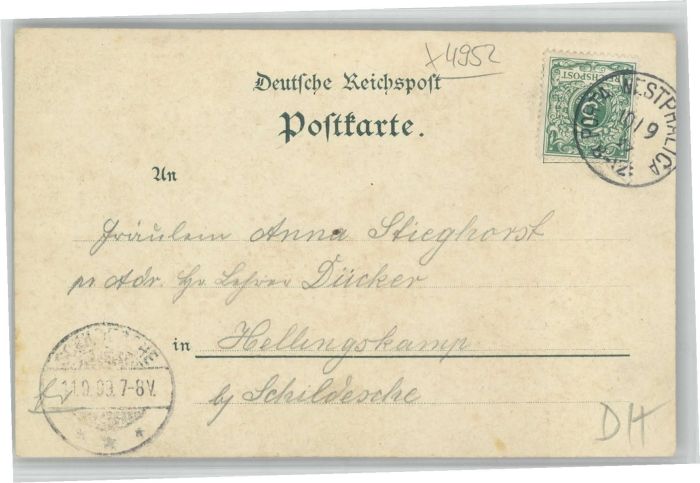 x4952
Deutsche Reichspost
Postkarte.
REICHSPOST
PORTA WESTPHALICA
10/9
8-12
An
Fräulein Anna Stieghorst
pr Adr. Hr. Lehrer Dücker
in Hellingskamp
bj Schildesche
SCHILDESCHE
11.9.99. 7-8V.
DH